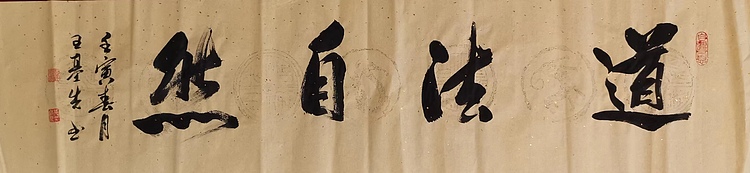 道法自然
壬寅春月
王基生书